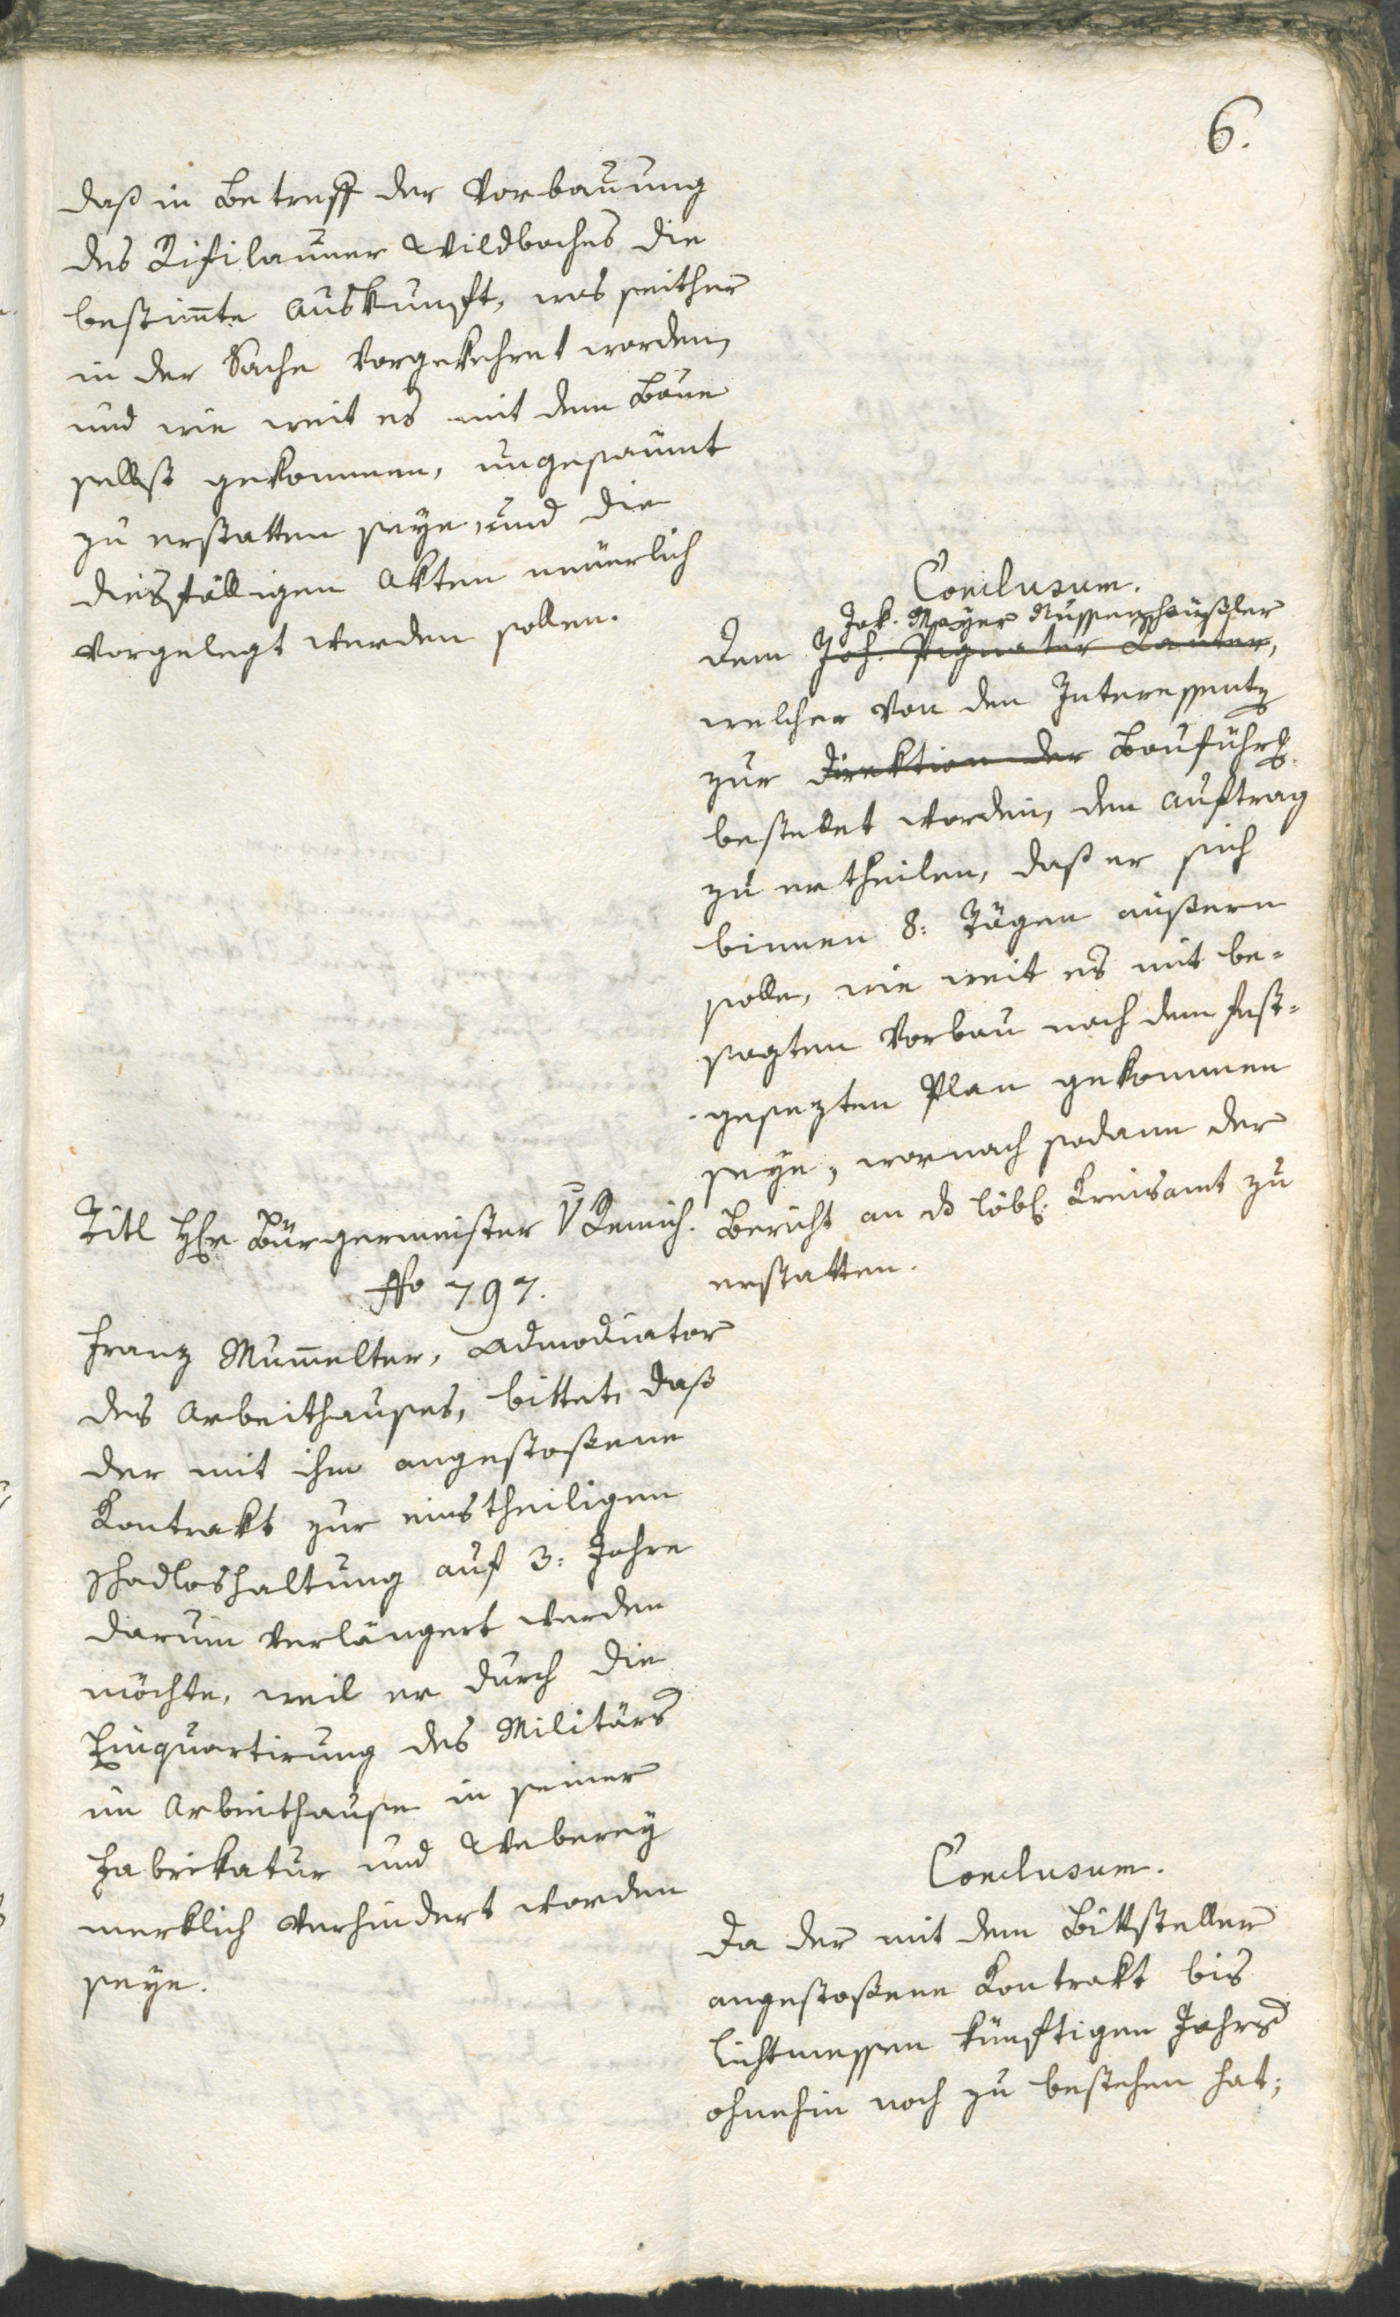 6.
daß in Betreff der Vorbauung
des Rifilauner Wildbaches die
bestim̅te Auskunft, was seither
in der Sache vorgekehret worden,
und wie weit es mit dem Baue
selbst gekommen, ungesaumt
zu erstatten seye, und die
diesfälligen Akten neuerlich
vorgelegt werden sollen.
Conclusum.
Jak. Mayer Nussenhäußler
Dem Joh. Pignater Lanter,
welcher von den Interessent
zur Direktion der Bauführ
bestellet worden, den Auftrag
zu ertheilen, daß er sich
binnen 8: Tägen äußern
solle, wie weit es mit be-
sagtem Vorbau nach dem fest-
gesezten Plan gekommen
seye, wornach sodann der
Bericht an d löbl. Kreisamt zu
erstatten.
Titl Hr Bürgermeister v Remich.
No 797.
Franz Mum̅elter, Admodiator
des Arbeithauses, bittet, daß
der mit ihm angestoßene
Kontrakt zur einstheiligen
Schadloshaltung auf 3: Jahre
darum verlängert werden
möchte, weil er durch die
Einquartirung des Militärs
im Arbeithause in seiner
Fabrikatur und Weberey
merklich verhindert worden
seye.
Conclusum.
Da der mit dem Bittsteller
angestoßene Kontrakt bis
Lichtmessen künftigen Jahrs
ohnehin noch zu bestehen hat;